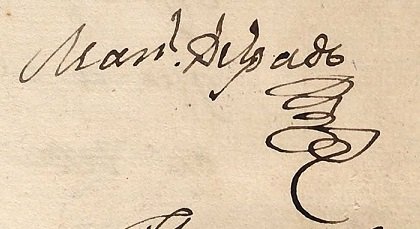 Man^l. Delgado